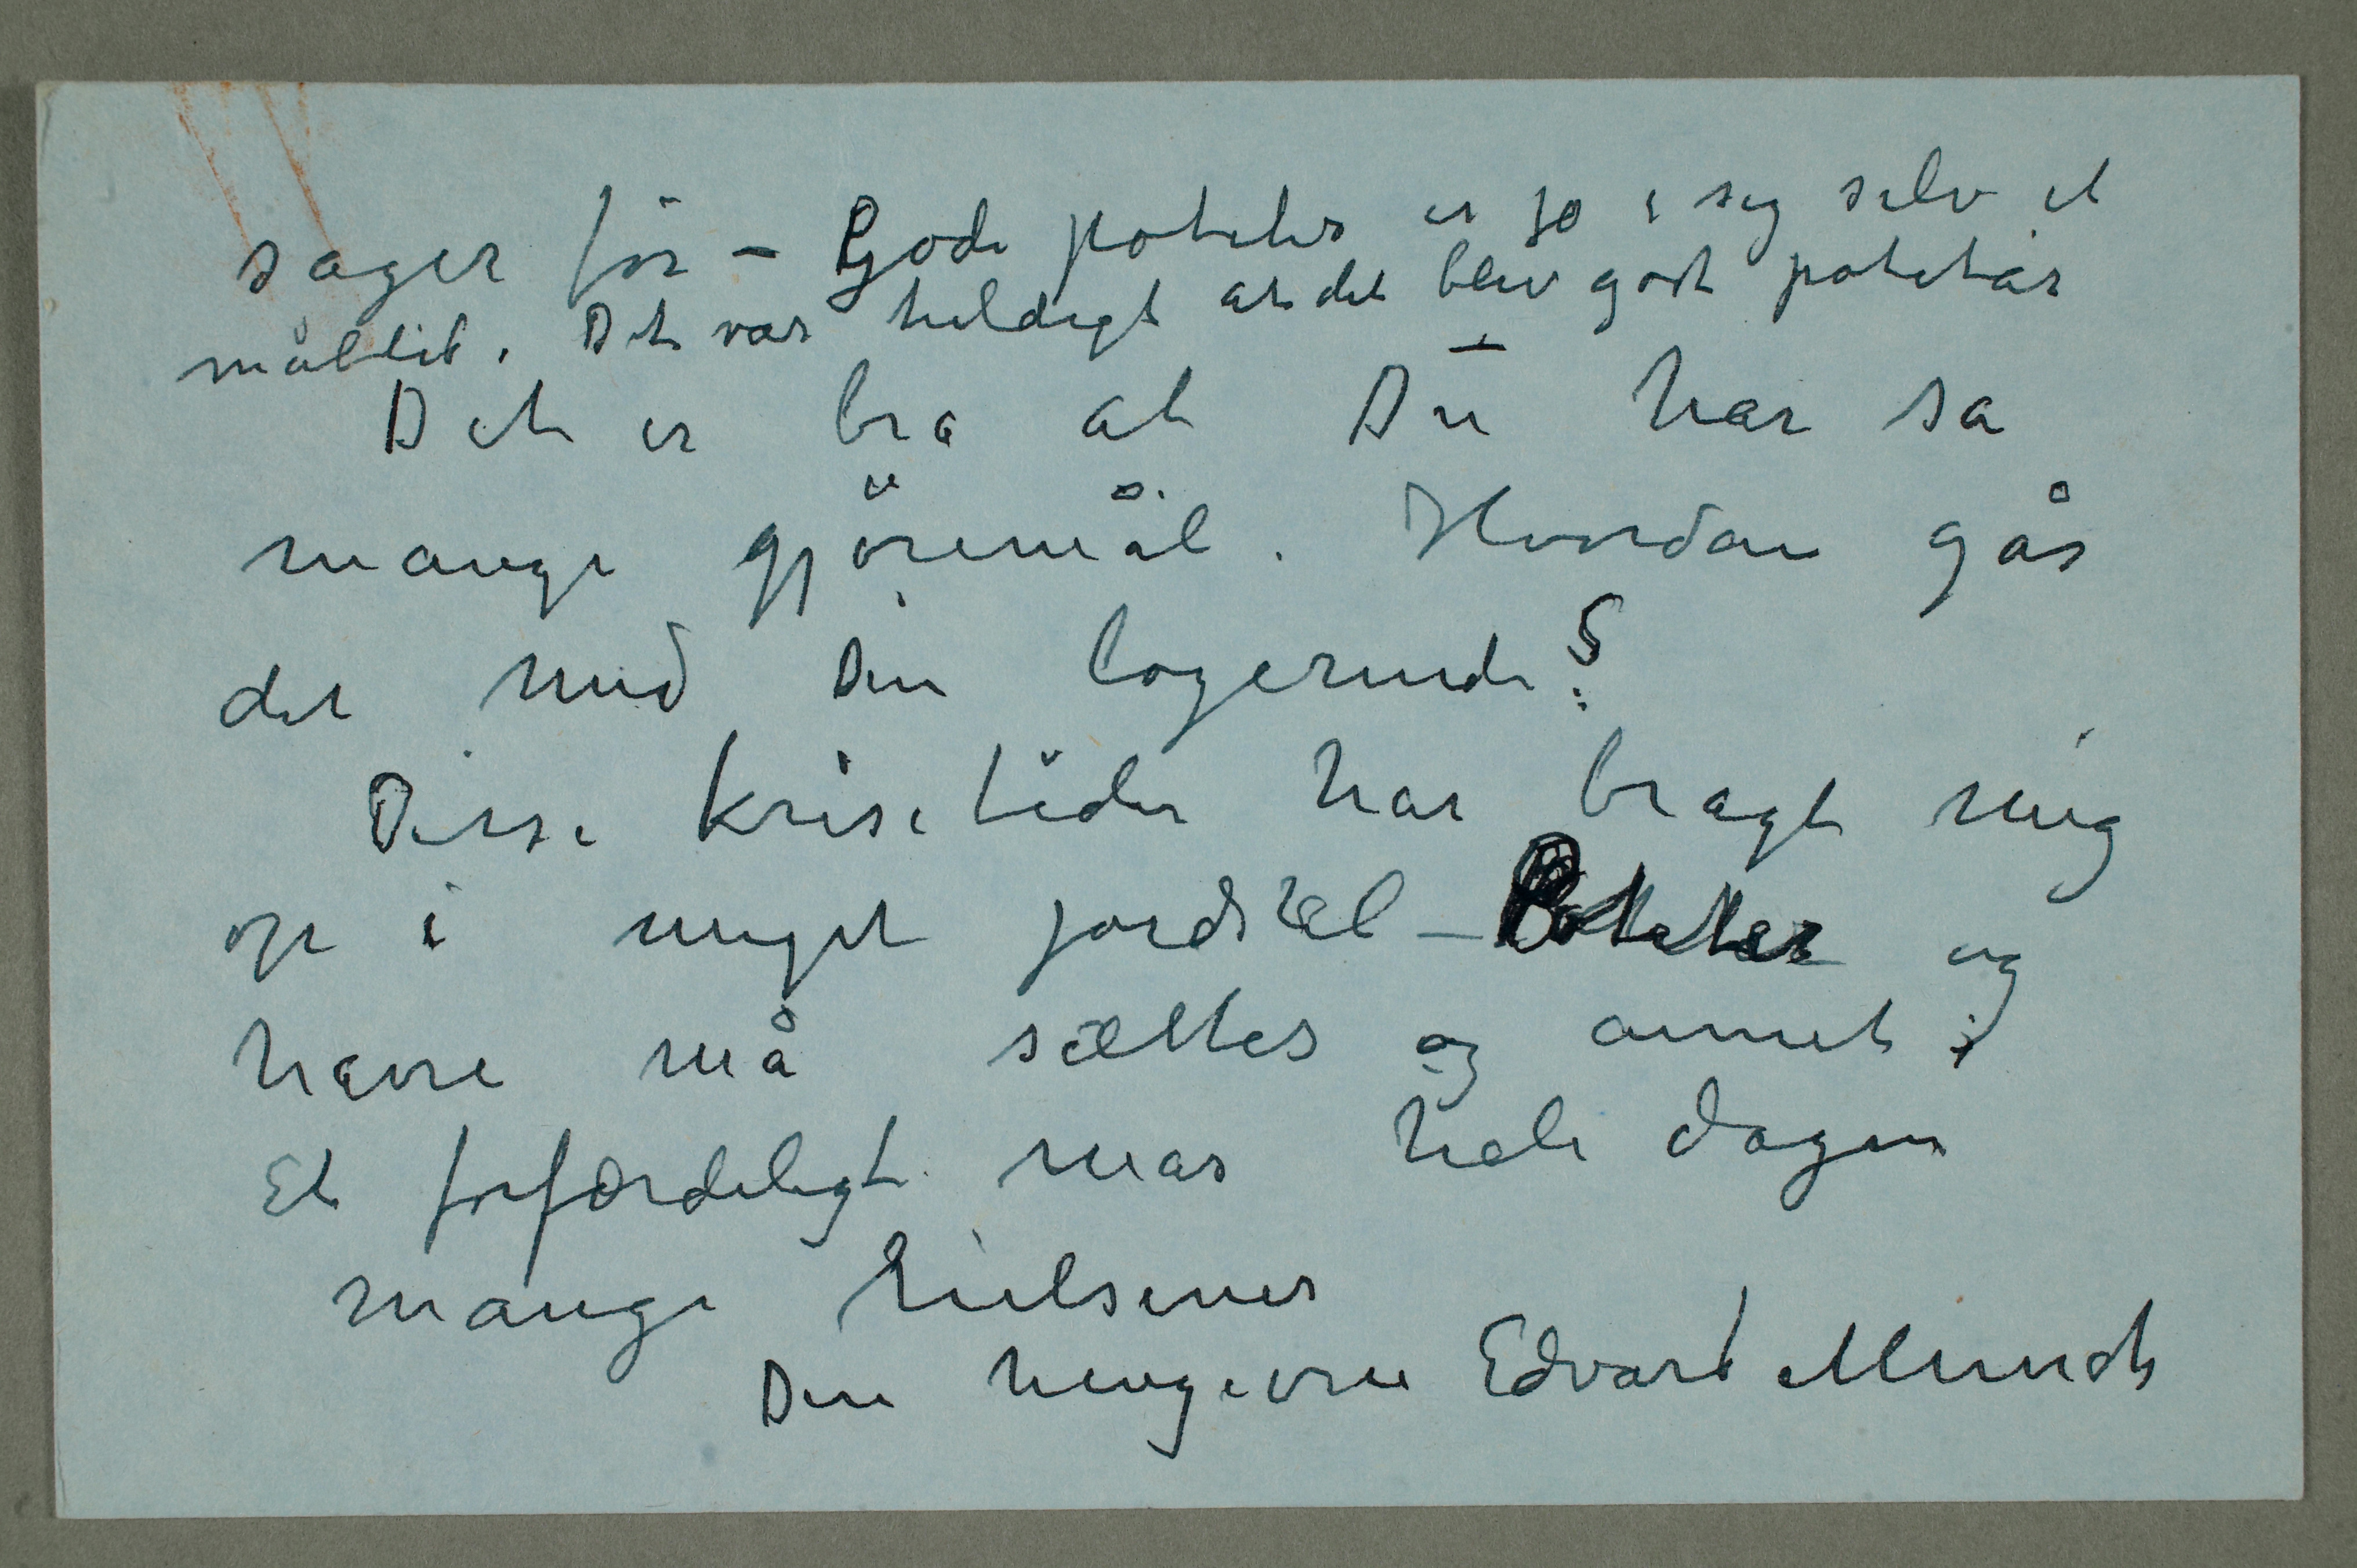 sager för – Gode poteter er jo i sig selv et
måltid. Det var heldigt at det blev godt potetår –
Det er bra at Du har så
mange gjöremål. Hvordan går
det med Din logerende?
Disse krisetider har bragt mig
op i meget jordstel – Poteter og
havre må sættes og annet;
Et forfærdeligt mas hele dagen
mange hilsener
Din hengivne Edvard Munch